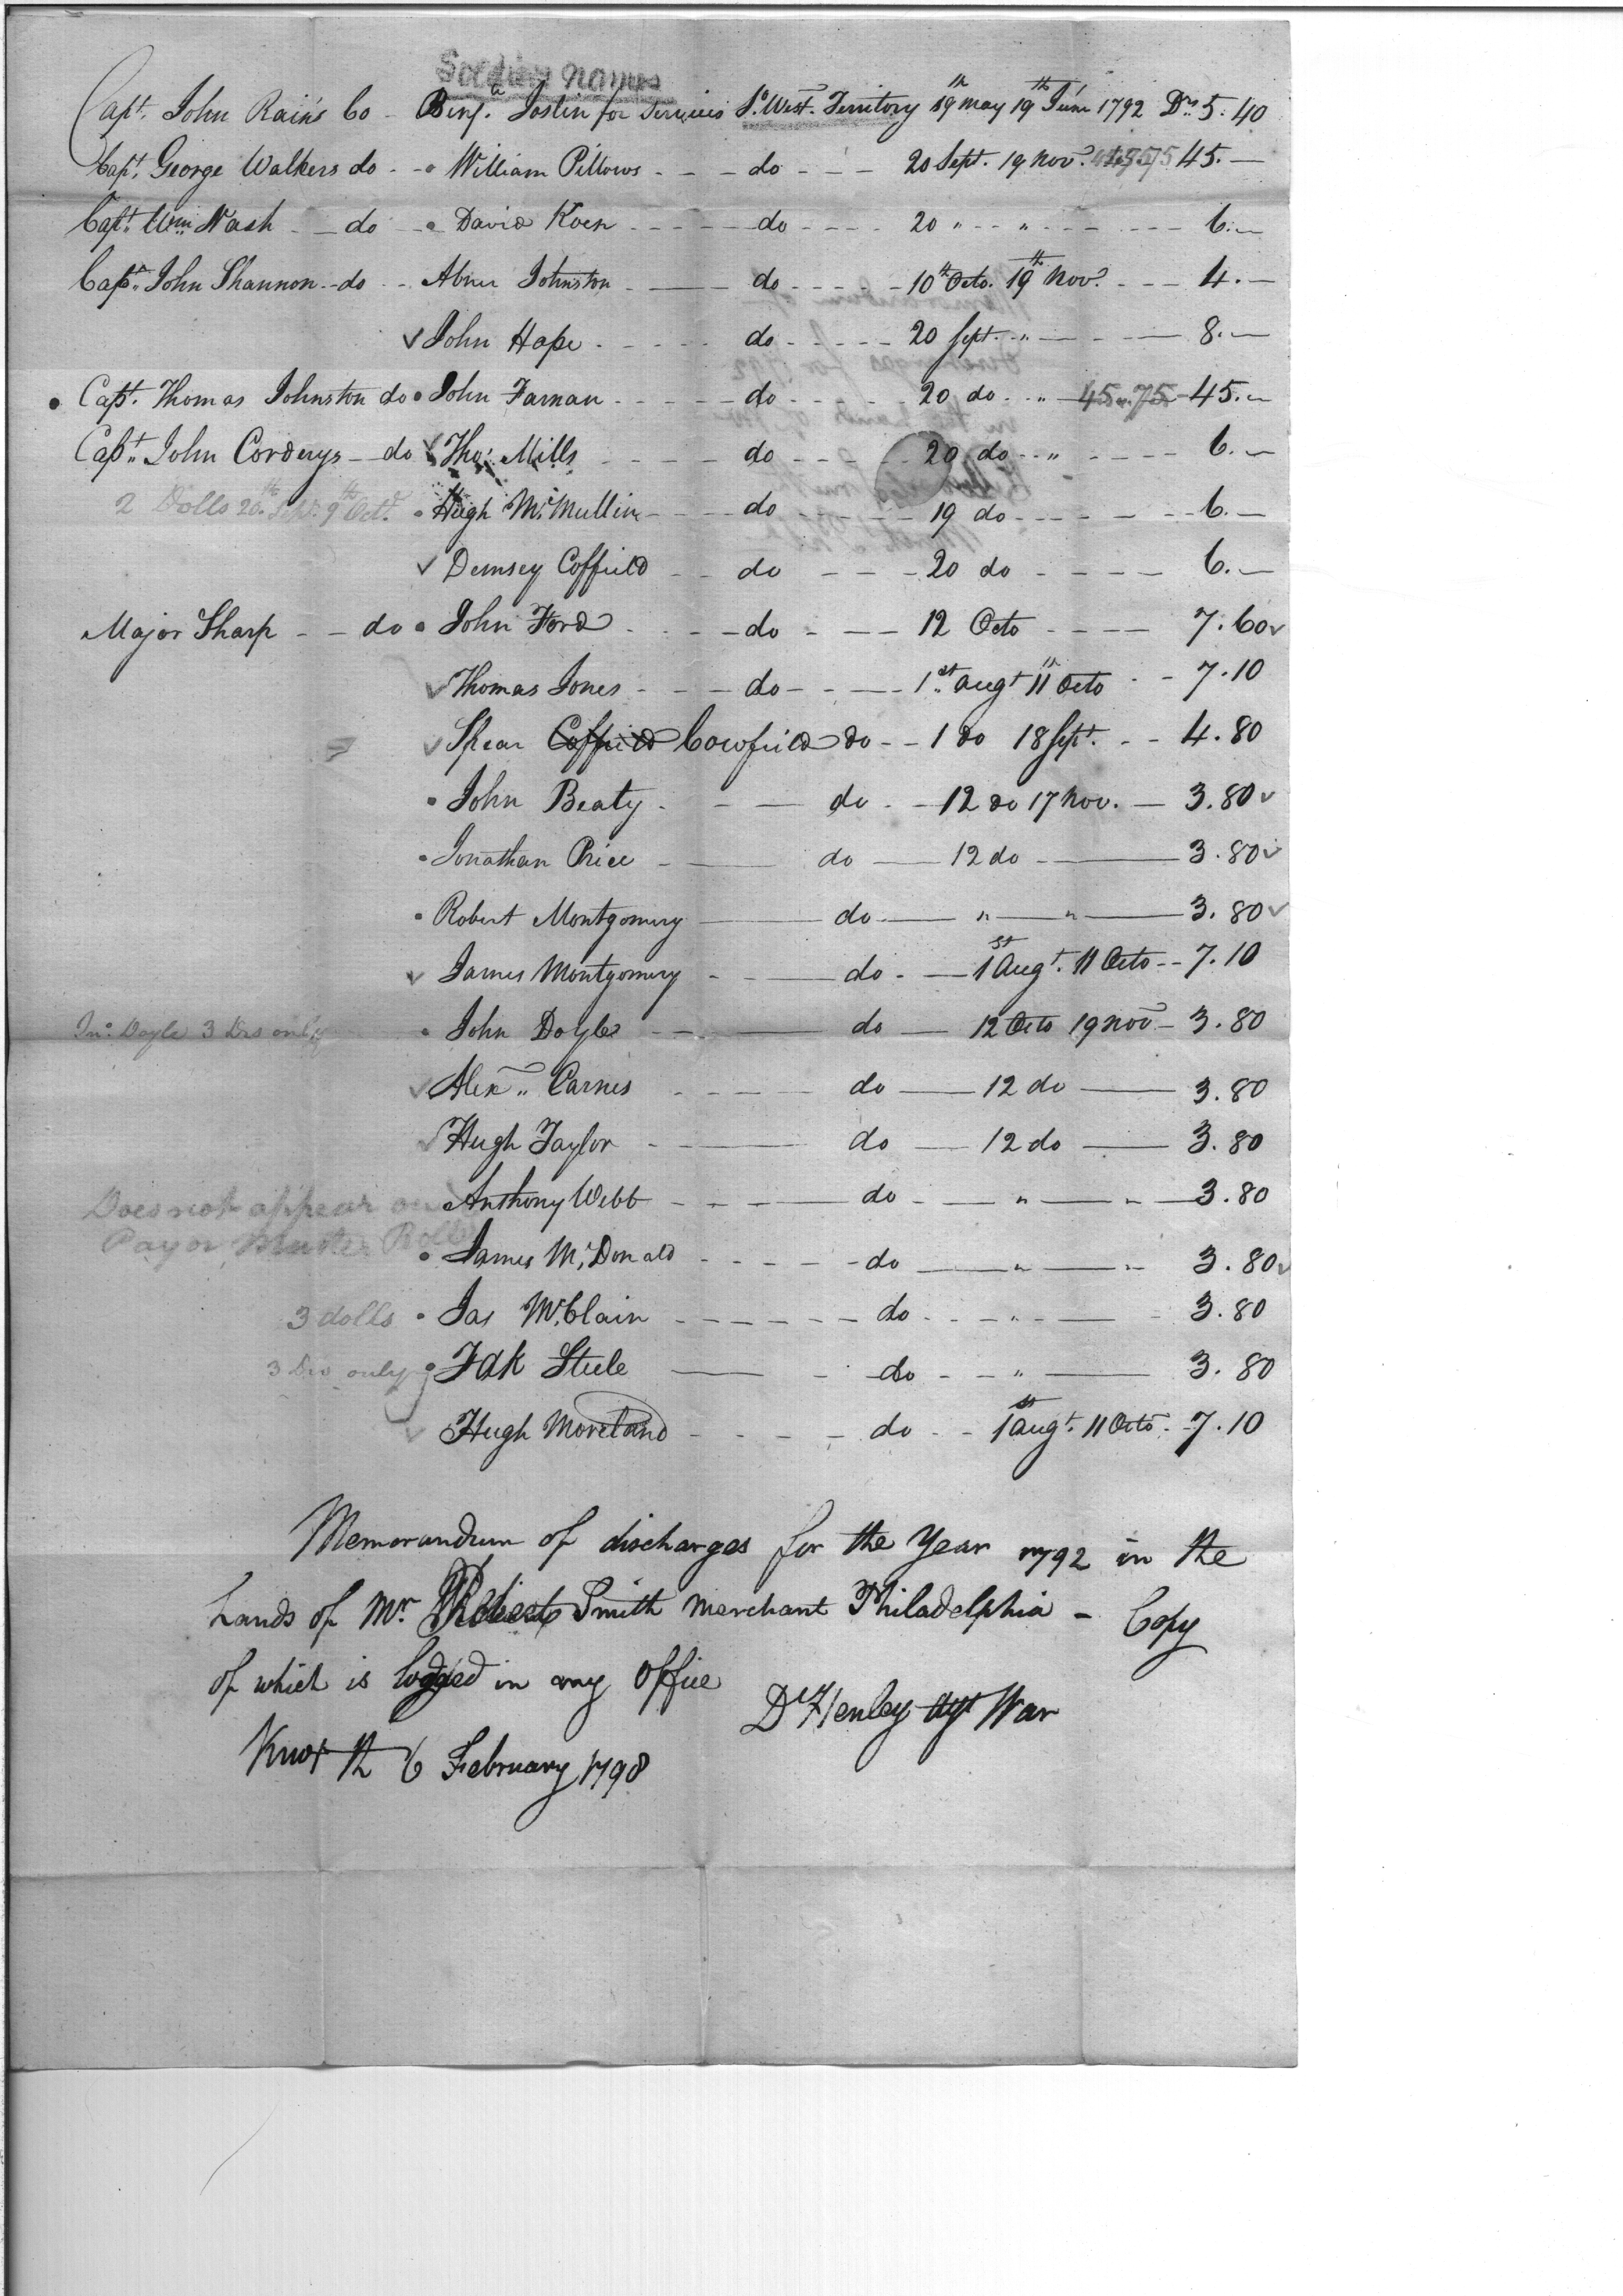 Soldiers names
Capt. John Rains Co - Benja. Joslin for services So. West. Territory 19th May 19th June 1792 Drs 5.40
Capt. George Walkers do - William Pillows - - do - - 20 Sept. 19 Nov. 45.75 45.-
Capt. Wm. Nash - do - David Koen - - do - - 20 " - " - - 6.-
Capt. John Shannon - do - Abner Johnston - do - - 10th Octo. 19th Nov. - - 4.-
✓ John Hope - - do - - 20 Sept. " - 8.-
Capt. Thomas Johnston do John Farnan - - do - - 20 do " 45.75 45.-
Capt. John Corderys - do ✓ Tho. Mills - - do - - 20 do " - - 6.-
2 Dolls 20th Sept. 9th Oct. Hugh McMullin - - do - - 19 do - - 6.-
✓ Demsey Coffield - - do - - 20 do - - 6.-
Major Sharp - - do John Ford - - do - - 12 Octo - - 7.60 ✓
✓ Thomas Jones - - do - - 1st Augt 11 Octo - - 7.10
✓ Spear Coffield Cowfield do - - 1 do 18 Sept. - - 4.80
John Beaty - - do - - 12 do 17 Nov. - 3.80 ✓
Jonathan Price - do - 12 do - 3.80 ✓
Robert Montgomery - do - " - " - 3.80 ✓
✓ James Montgomery - - do - - 1st Augt. 11 Octo - - 7.10
Jno. Doyle 3 Drs only John Doyle - - do - 12 Octo 19 Nov - 3.80
✓ Alexr. Carnes - - do - 12 do - 3.80
✓ Hugh Taylor - do - 12 do - 3.80
Does not appear on Anthony Webb - - do - " - " - 3.80
Pay or Muster Rolls
James McDonald - - do - " - " 3.80 ✓
3 dolls Jas McClain - - do - " - 3.80
3 Drs only Fdk Steele - - do - - " - 3.80
✓ Hugh Moreland - - do - - 1st Augt. 11 Octo - 7.10
Memorandum of discharges for the Year 1792 in the
hands of Mr Robert Smith Merchant Philadelphia - Copy
of which is lodged in my office
D Henley Agt War
Knox 6 February 1798